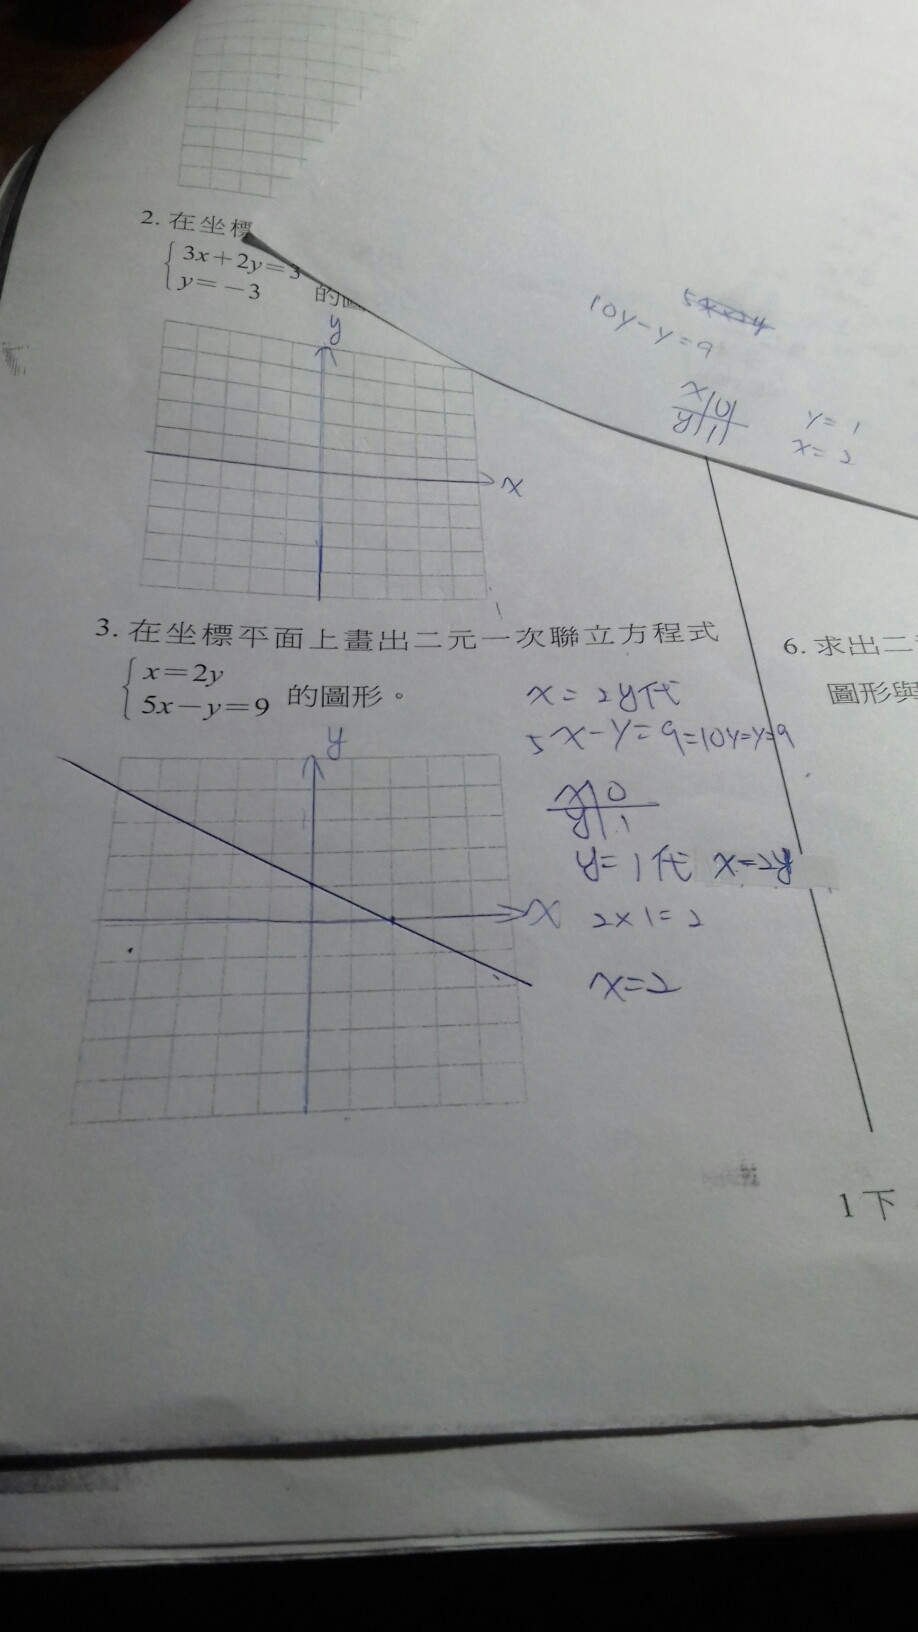 2. 在坐標
3x+2y=3
y=-3
的圖
y
x
10y-y=9
x 0
y 1
y=1
x=2
3. 在坐標平面上畫出二元一次聯立方程式
x=2y
5x-y=9
的圖形。
y
x
x=2y代
5x-y=9=10y=y=9
x 0
y 1
y=1代 x=2y
2x1=2
x=2
6. 求出二
圖形與
1下